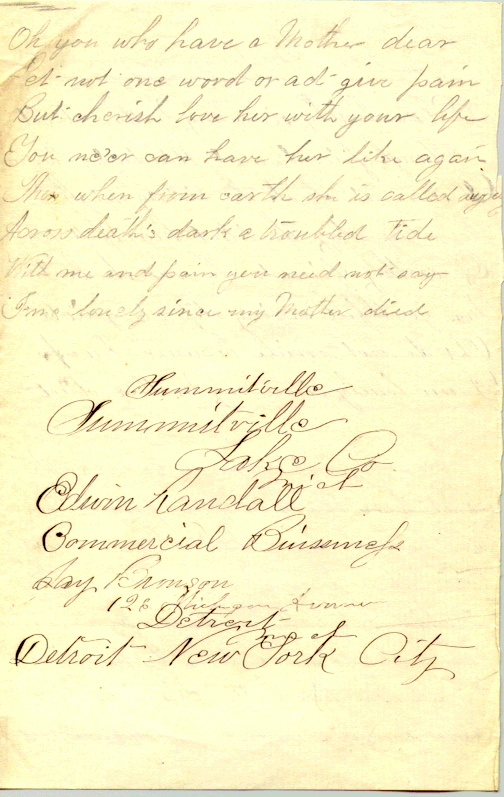 Oh you who have a Mother dear
Let not one word or act give pain
But cherish love her with your life
You ne'er can have her like again
Then when from earth she is called away
Across death's dark & troubled tide
With me and pain you need not say
I'me lonely since my Mother died
Summitville
Summitville
Lake Co.
Mich
Edwin Randall
Commercial Buisness
Jay Bronson
128 Michigan Avenue
Detroit
Mich
Detroit New York City